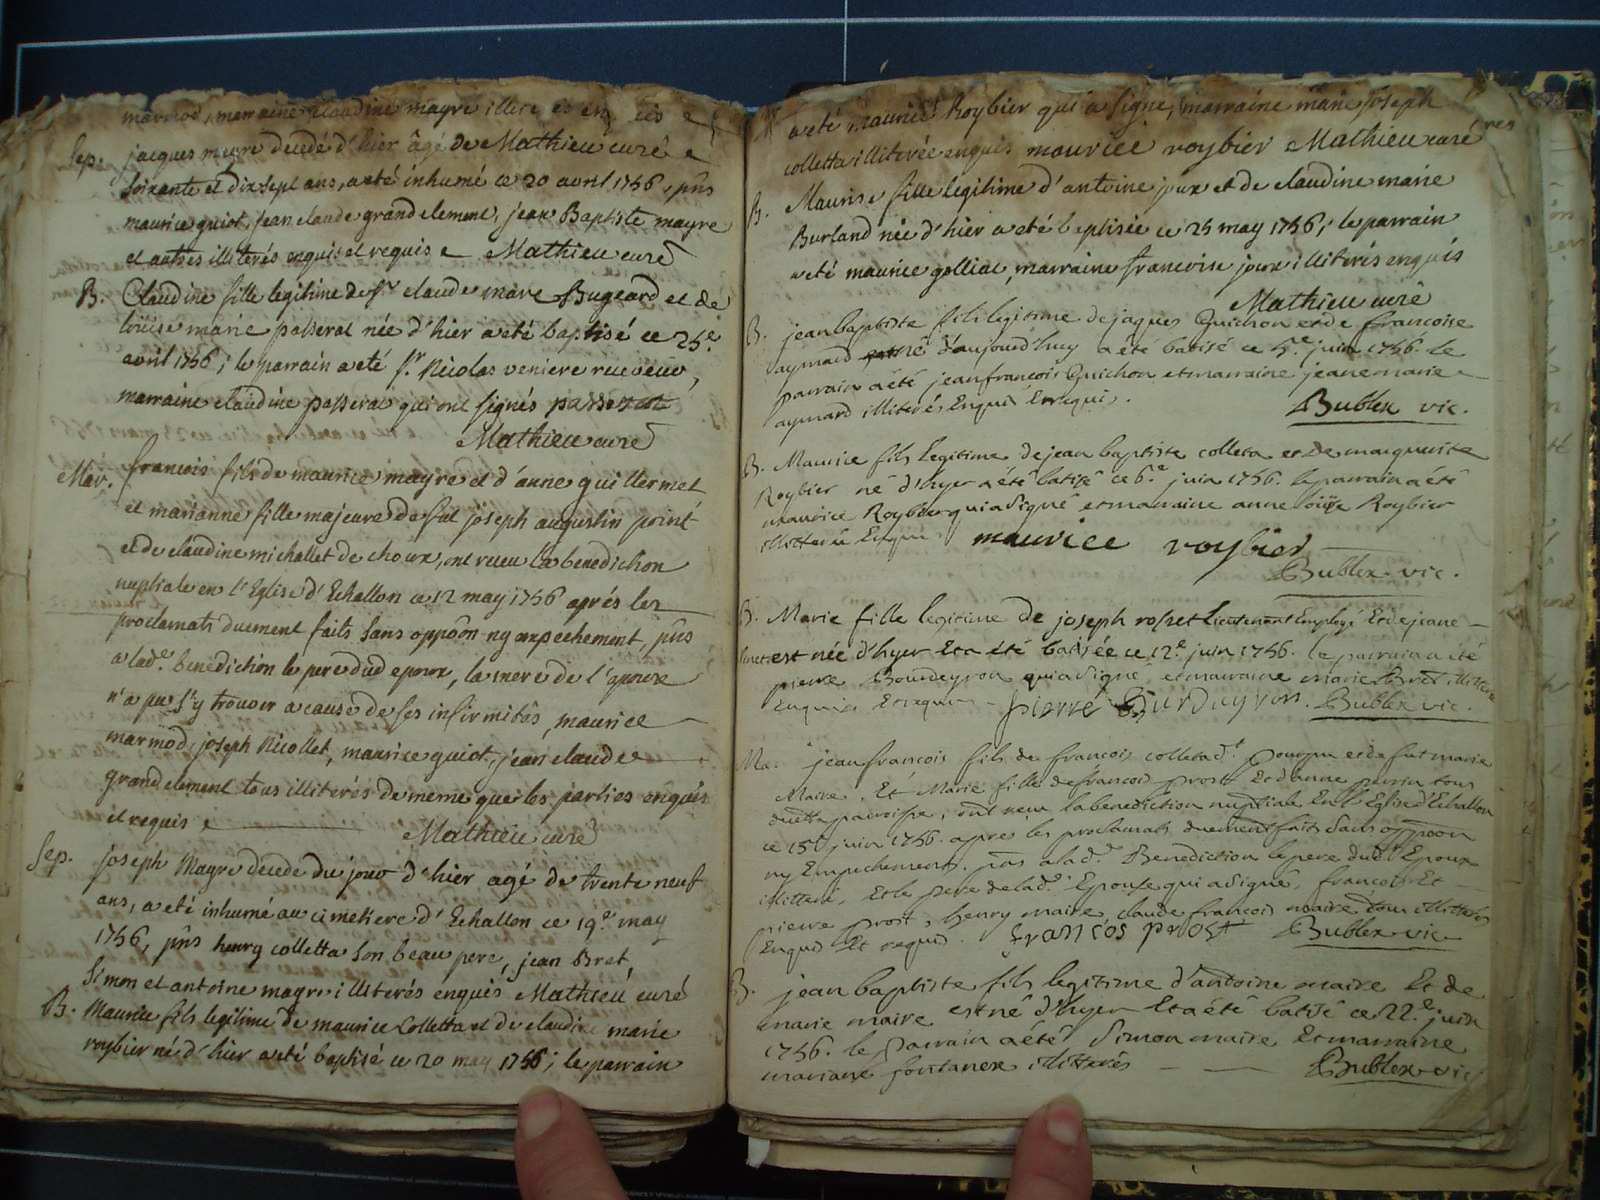 marmod, marraine claudine mayre
Sep. jacques meyre decedé d'hier âgé de Mathieu curé
soixante et dix sept ans, a eté inhumé ce 20 avril 1756, pñs
maurice guiot, jean claude grandclement, jean Baptiste mayre
et autres illiterés enquis et requis Mathieu curé
B. Claudine fille legitime de Sr claude marc Bugeard et de
loüise marie passerat née d'hier a eté baptisé ce 25e
avril 1756; le parrain a eté Sr Nicolas veniere receveur,
marraine claudine passerat qui ont signés passerat
Mathieu curé
Mar. francois fils de maurice mayre et d'anne guillermet
et marianne fille majeure de fut joseph augustin point
et de claudine michallet de choux, ont receu la benediction
nuptiale en l'Eglise d'Echallon ce 12 may 1756 aprés les
proclamats duement faits sans oppõon ny empechement, pñs
a lade benediction le pere dud epoux, la mere de l'epouse
n'a pu s'y trouver a cause de ses infirmités, maurice
marmod, joseph Nicollet, maurice guiot, jean claude
grandclement tous illiterés de meme que les parties enquis
et requis Mathieu curé
Sep. joseph Mayre decede du jour d'hier agé de trente neuf
ans, a eté inhumé au cimetiere d'Echallon ce 19e may
1756, pñs henry colletta son beau pere, jean Bret,
Simon et antoine mayre illiterés enquis Mathieu curé
B. Maurice fils legitime de maurice Colletta et de claudine marie
roybier né d'hier a eté baptisé ce 20 may 1756; le parrain
a eté maurice Roybier qui a signé, marraine marie joseph
colletta illiterée enquis maurice roybier Mathieu curé
B. Maurise fille legitime d'antoine joux et de claudine marie
Burland née d'hier a eté baptisée ce 25 may 1756; le parrain
a eté maurice golliat, marraine francoise joux illiterés enquis
Mathieu curé
B. jean baptiste fils legitime de jaques Quichon et de francoise
aymard né d'aujourd'huy a été batisé ce 5e juin 1756. le
parrain a été jean francois Quichon et marraine jeane marie
aymard illiterés Enquis Et requis. Bublex vic.
B. Maurice fils legitime de jean baptiste colleta et de marguerite
Roybier né d'hyer a été batisé ce 6e juin 1756. le parrain a été
maurice Roybier qui a signé et marraine anne loüise Roybier
illitterée Enquis maurice roybier
Bublex vic.
B. Marie fille legitime de joseph rosset Lieutenant Employé Et de jeane
est née d'hyer Et a été batisée ce 12e juin 1756. le parrain a été
pierre Bourdeyron qui a signé et marraine marie Bret
Enquis Et requis pierre Burduyron. Bublex vic.
Ma. jean francois fils de francois colleta dt et de fut marie
Maire, Et Marie fille de francois prost Et d'anne perrin tous
paroisse, ont recu la benediction nuptiale En l'Eglise d'Echallon
ce 15e juin 1756. apres les proclamats duement faits Sans oppõon
ny Empechement, pñs a lade Benediction le pere dudt Epoux
illitteré, Et le pere de lade Epouse qui a signé, francois Et
pierre prost, henry maire, claude francois maire tous illitterés
Enquis Et requis. francos prost Bublex vic
B. jean baptiste fils legitime d'antoine maire Et de
marie maire est né d'hyer Et a été batisé ce 22e juin
1756. le parrain a été Simon maire Et marraine
mariane fontanex illitterés Bublex vic